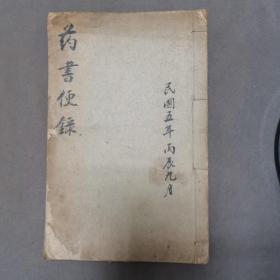 药書便錄
民國五年丙辰九月